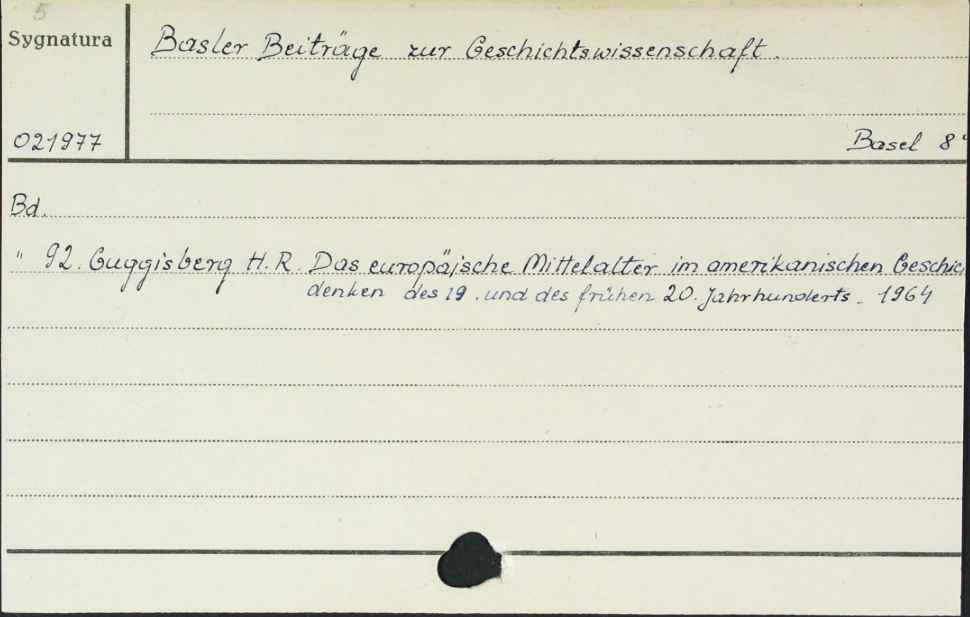 5
Sygnatura
Basler Beiträge zur Geschichtswissenschaft.
021977
Basel 8°
Bd.
" 92. Guggisberg H. R. Das europäische Mittelalter im amerikanischen Geschic
denken des 19. und des frühen 20. Jahrhunderts. 1964